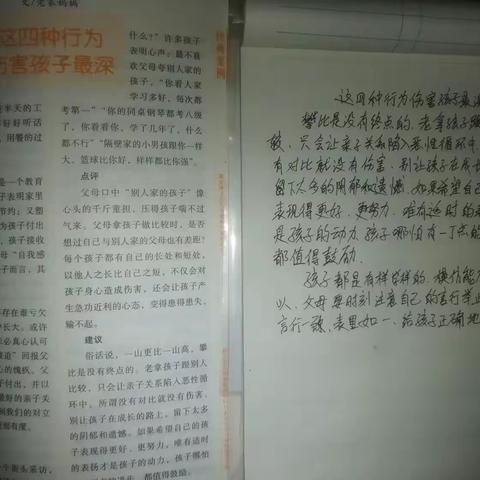 文/党家妈妈
这四种行为
伤害孩子最深
什么?”许多孩子
表明心声:最不喜
欢父母夸别人家的
孩子,“你看人家
学习多好,每次都
考第一”“你的同桌钢琴都考八级
了,你看看你,学了几年了,什么
都不行”“隔壁家的小男孩跟你一样
大,篮球比你好,样样都比你强”。
点评
父母口中“别人家的孩子”像
心头的千斤重担,压得孩子喘不过
气来。父母拿孩子做比较时,是否
想过自己与别人家的父母也有差距?
每个孩子都有自己的长处和短处,
以他人之长比自己之短,不仅会对
孩子身心造成伤害,还会让孩子产
生急功近利的心态,变得患得患失、
输不起。
建议
俗话说,一山更比一山高,攀
比是没有终点的。老拿孩子跟别人
比较,只会让亲子关系陷入恶性循
环中。所谓没有对比就没有伤害,
别让孩子在成长的路上,留下太多
的阴郁和遗憾。如果希望自己的孩
子表现得更好、更努力,唯有适时
的表扬才是孩子的动力,孩子哪怕
都值得鼓励。
半天的工
好好听话
,用餐的过
是一个教育
子表明家里
节约;又塑
为孩子付出
,孩子接收
母“自我感
子而言,其
存在着亏欠
中长大。或许
必真心认可
报道”回报父
心的愧疚。父
子付出,并以
最好的亲子关
到我们的对立
都有度。
街头采访,
这四种行为伤害孩子最深
攀比是没有终点的,老拿孩子跟
较,只会让亲子关系陷入恶性循环中,
有对比就没有伤害,别让孩子在成长
留下太多的阴郁和遗憾,如果希望自己
表现得更好、更努力,唯有适时的
是孩子的动力,孩子哪怕有一丁点的
都值得鼓励。
孩子都是有样学样的,模仿能力
以,父母要时刻注意自己的言行举止
言行一致、表里如一、给孩子正确地